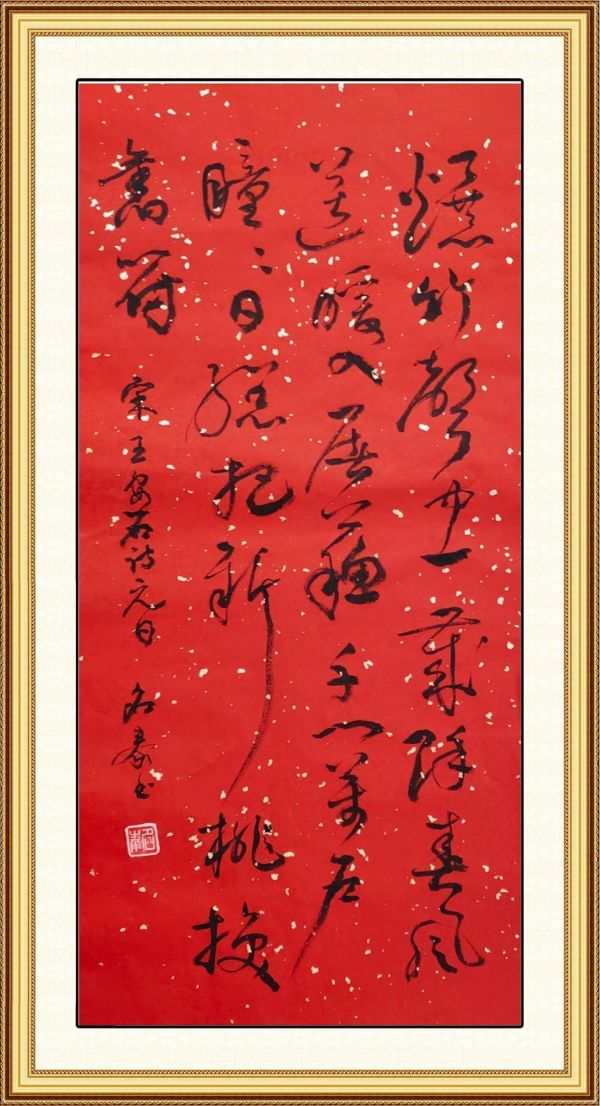 爆竹聲中一歲除春風
送暖入屠蘇千門萬戶
瞳〻日總把新桃換
舊符
宋王安石詩元日 名泰书